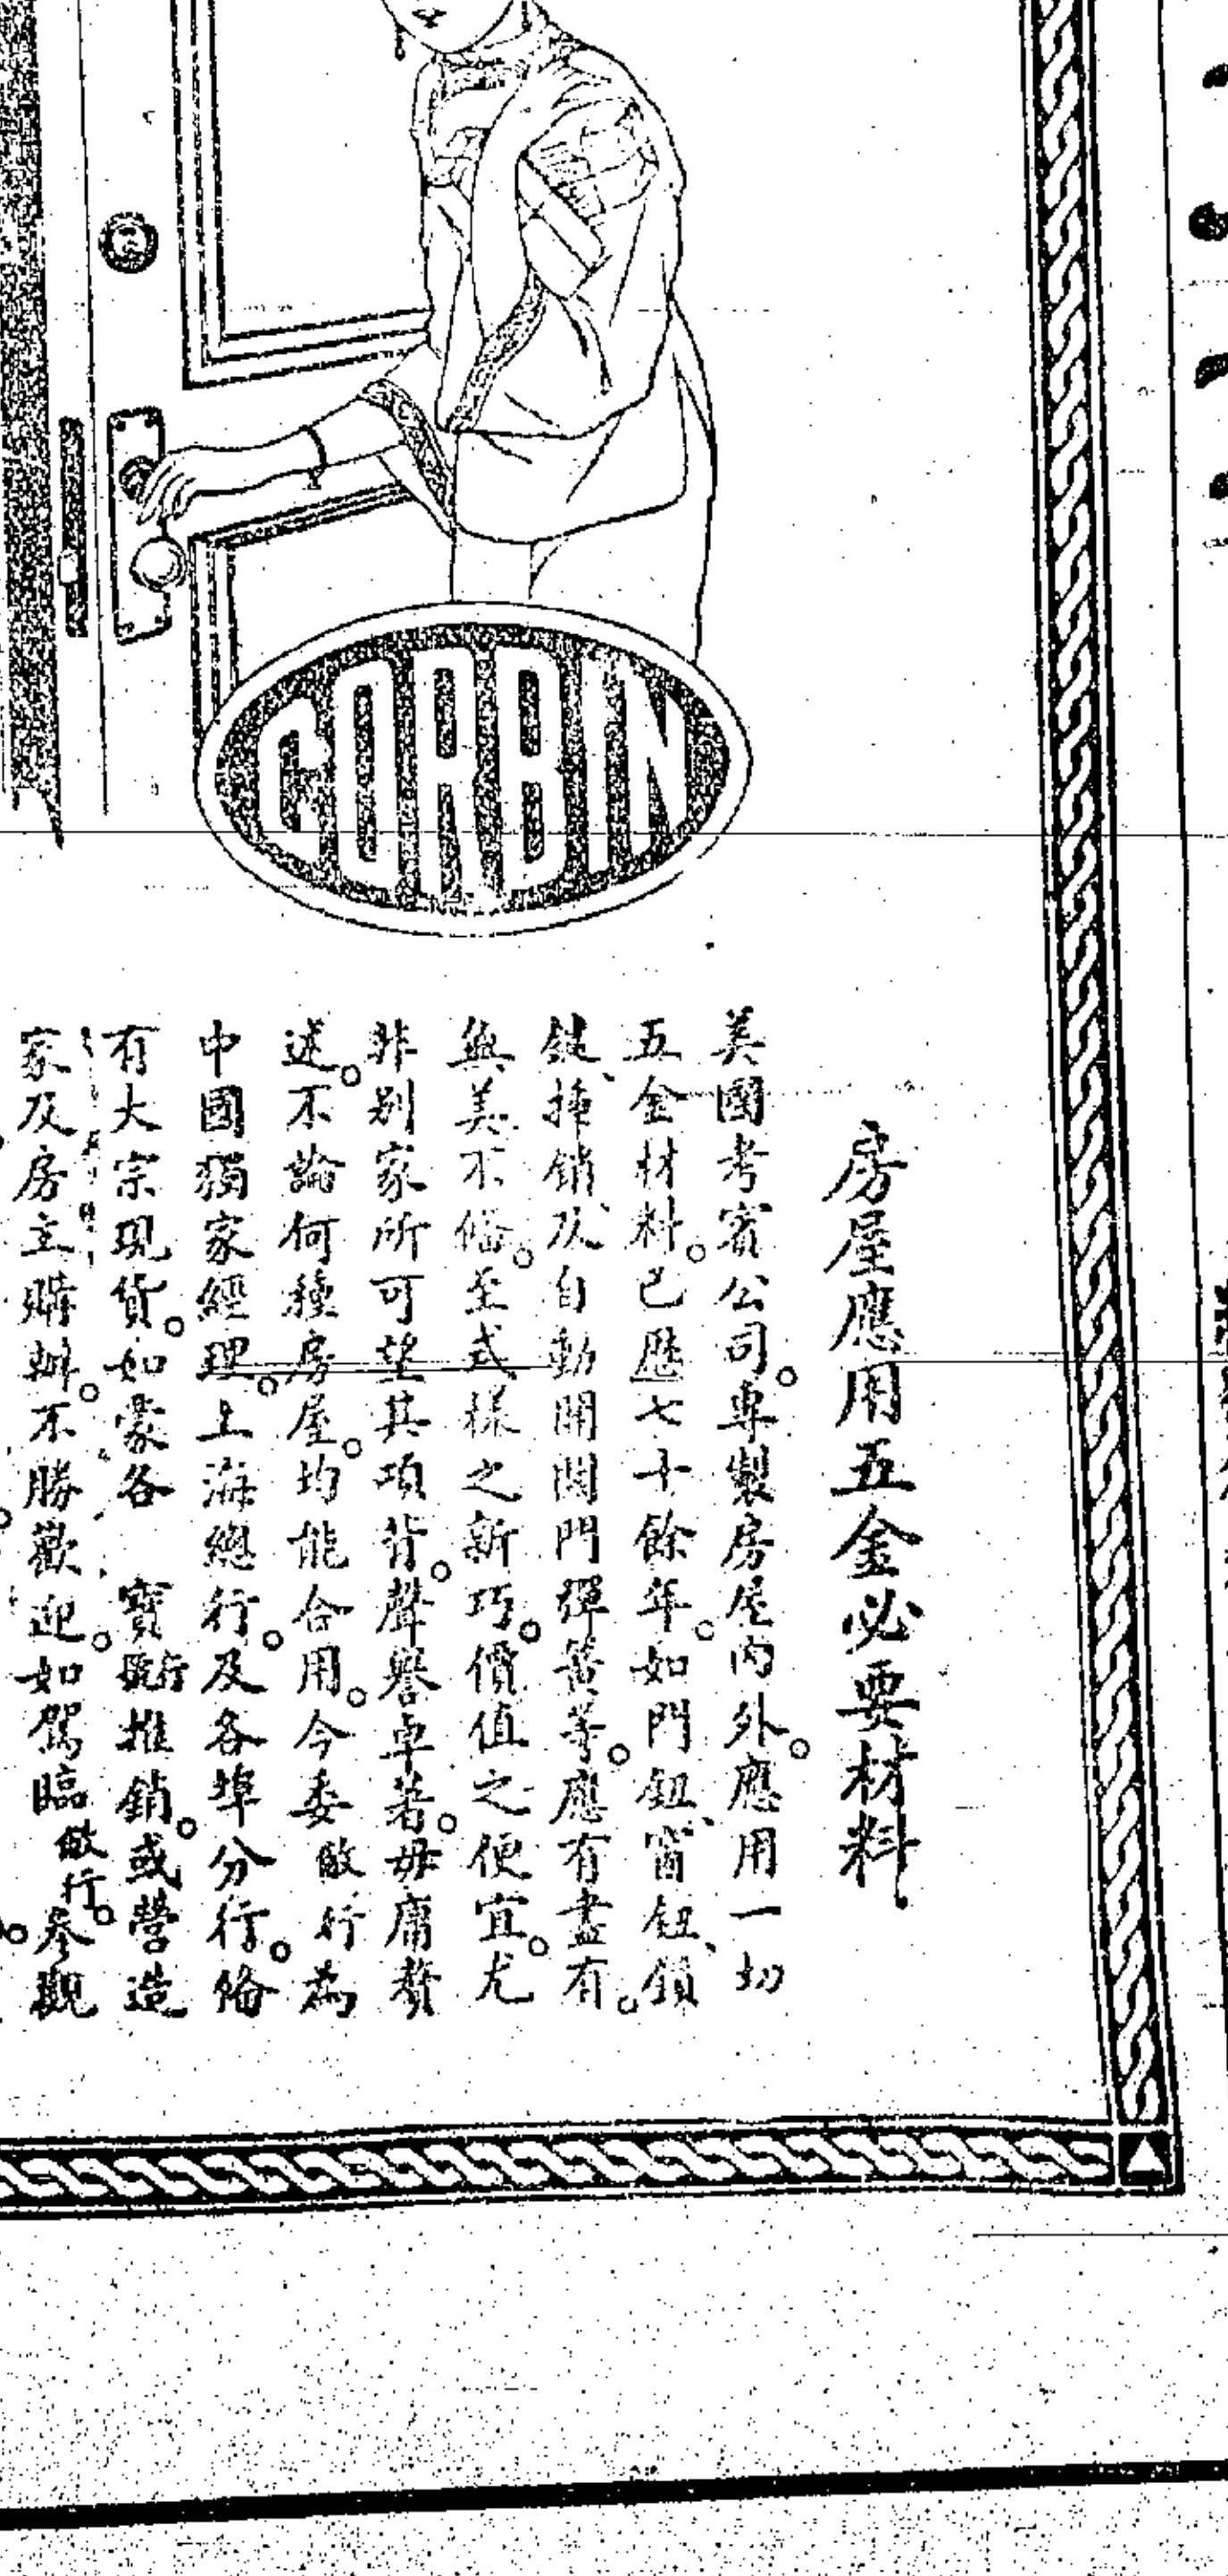 CORBIN
房屋應用五金必要材料
美國考賓公司。專製房屋內外。應用一切
五金材料。已歷七十餘年。如門鈕、窗鈕、鎖
鍵、插銷、及自動開關門彈簧等。應有盡有。
無美不備。至式樣之新巧。價值之便宜。尤
非別家所可望其項背。聲譽卓著。毋庸贅
述。不論何種房屋。均能合用。今委敝行為
中國獨家經理。上海總行。及各埠分行。備
有大宗現貨。如蒙各 寶號推銷。或營造
家及房主購辦。不勝歡迎。如駕臨敝行。參觀